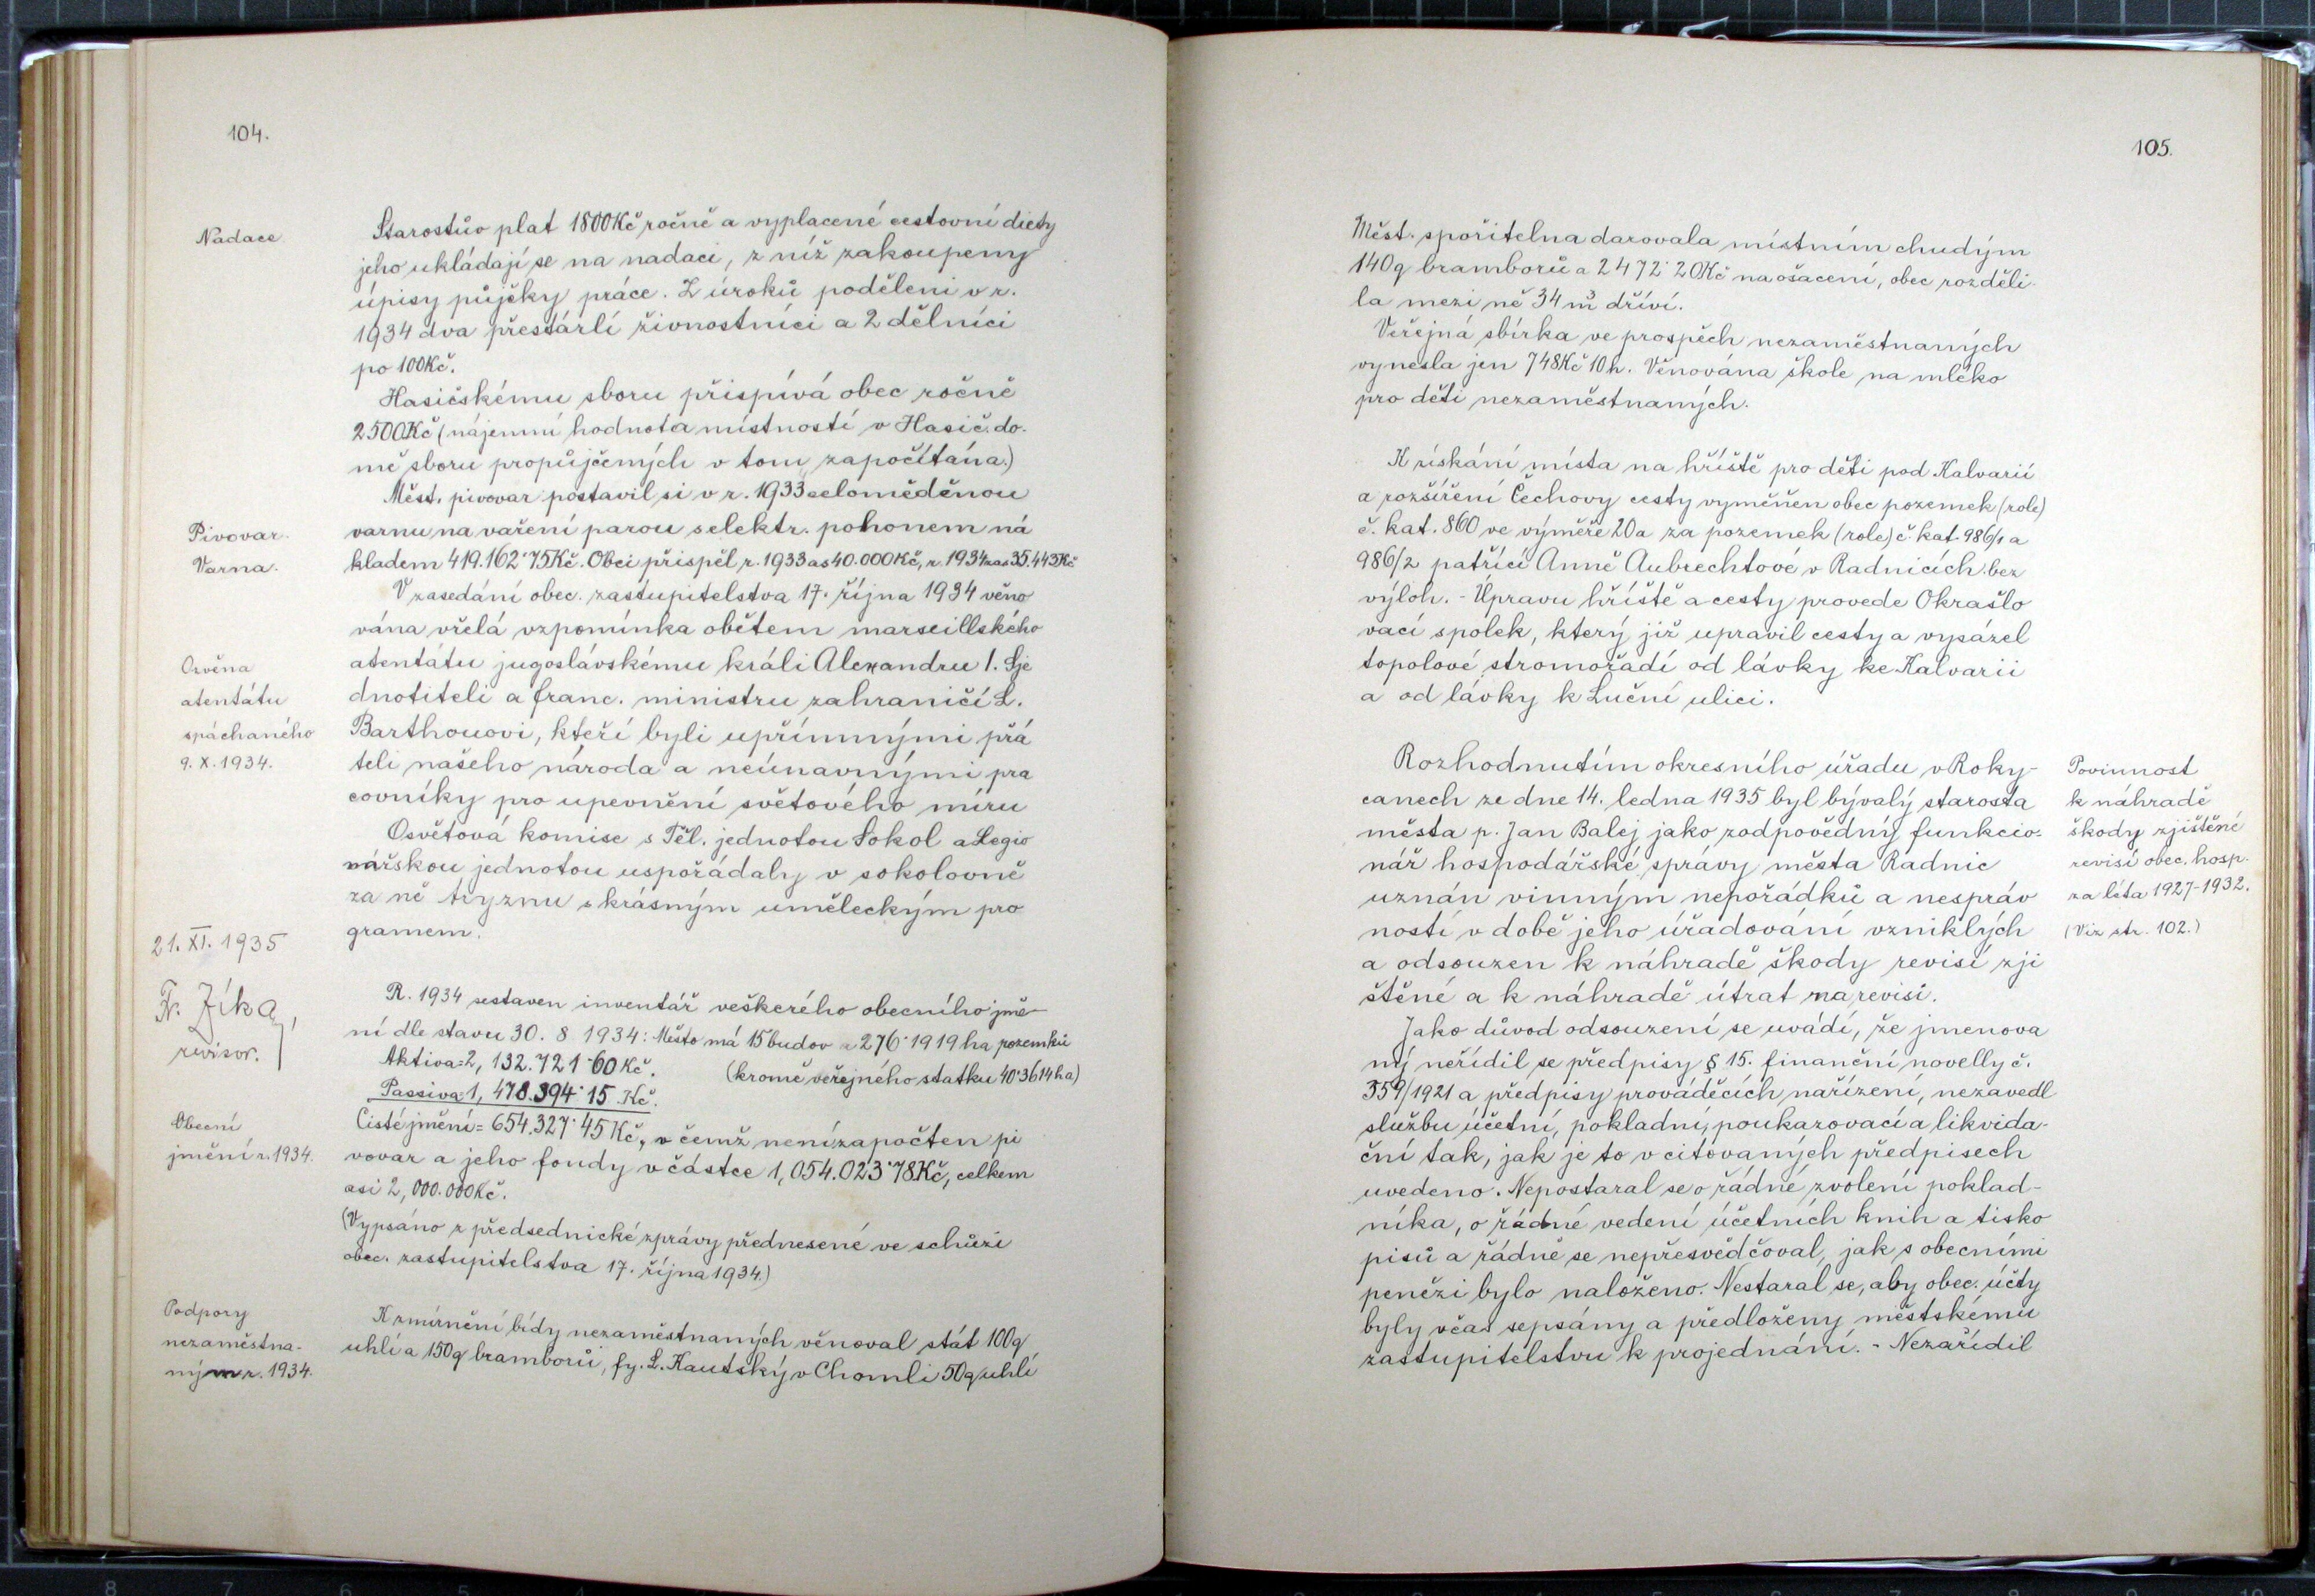 104.
Nadace
Starostův plat 1800Kč ročně a vyplacené cestovní diety
jeho ukládají se na nadaci, z níž zakoupeny
úpisy půjčky práce. Z úroků poděleni v r.
1934 dva přestárlí živnostníci a 2 dělníci
po 100Kč.
Hasičskému sboru přispívá obec ročně
2500Kč (nájemní hodnota místností v Hasič. do-
mě sboru propůjčených v tom započítána.)
Měst. pivovar postavil si v r. 1933 celoměděnou
Pivovar.
varnu na vaření parou s elektr. pohonem ná
Varna.
kladem 419.162·75Kč. Obci přispěl r. 1933 as 40.000Kč, r. 1934 zas 35.443Kč
V zasedání obec. zastupitelstva 17. října 1934 věno
vána vřelá vzpomínka obětem marseillského
Ozvěna
atentátu
spáchaného
9. X. 1934.
atentátu jugoslávskému králi Alexandru I. Sje
dnotiteli a franc. ministru zahraničí L.
Barthouovi, kteří byli upřímnými přá
teli našeho národa a neúnavnými pra
covníky pro upevnění světového míru
Osvětová komise s Těl. jednotou Sokol a Legio
nářskou jednotou uspořádaly v sokolovně
za ně tryznu s krásným uměleckým pro
gramem.
21. XI. 1935
Fr. Zíka,
revisor.
R. 1934 sestaven inventář veškerého obecního jmě-
ní dle stavu 30. 8 1934: Město má 15 budov a 276·1919 ha pozemků
Aktiva=2,132.721·60 Kč. (kromě veřejného statku 40·3614ha)
Passiva 1,478.394·15 Kč.
Obecní
jmění r. 1934.
Čisté jmění = 654.327·45 Kč, v čemž není započten pi
vovar a jeho fondy v částce 1,054.023·78Kč, celkem
asi 2,000.000Kč.
(Vypsáno z předsednické zprávy přednesené ve schůzi
obec. zastupitelstva 17. října 1934.)
Podpory
nezaměstna-
ným r. 1934.
K zmírnění bídy nezaměstnaných věnoval stát 100q
uhlí a 150q bramborů, fy. L. Kautský v Chomli 50q uhlí
105.
Měst. spořitelna darovala místním chudým
140q bramborů a 2472·20Kč na ošacení, obec rozděli-
la mezi ně 34 m³ dříví.
Veřejná sbírka ve prospěch nezaměstnaných
vynesla jen 748Kč 10h. Věnována škole na mléko
pro děti nezaměstnaných.
K získání místa na hřiště pro děti pod Kalvarií
a rozšíření Čechovy cesty vyměněn obec pozemek (role)
č. kat. 860 ve výměře 20a za pozemek (role) č. kat. 986/1 a
986/2 patřící Anně Aubrechtové v Radnicích bez
výloh. - Úpravu hřiště a cesty provede Okrašlo
vací spolek, který již upravil cesty a vysázel
topolové stromořadí od lávky ke Kalvarii
a od lávky k Luční ulici.
Rozhodnutím okresního úřadu v Roky-
canech ze dne 14. ledna 1935 byl bývalý starosta
města p. Jan Balej jako zodpovědný funkcio-
nář hospodářské správy města Radnic
uznán vinným nepořádků a nespráv
ností v době jeho úřadování vzniklých
a odsouzen k náhradě škody revisí zji
štěné a k náhradě útrat na revisi.
Povinnost
k náhradě
škody zjištěné
revisí obec. hosp.
za léta 1927-1932.
(Viz str. 102.)
Jako důvod odsouzení se uvádí, že jmenova
ný neřídil se předpisy § 15. finanční novelly č.
359/1921 a předpisy prováděcích nařízení, nezavedl
službu účetní, pokladní, poukazovací a likvida-
ční tak, jak je to v citovaných předpisech
uvedeno. Nepostaral se o řádné zvolení poklad-
níka, o řádné vedení účetních knih a tisko
pisů a řádně se nepřesvědčoval, jak s obecními
penězi bylo naloženo. Nestaral se, aby obec. účty
byly včas sepsány a předloženy městskému
zastupitelstvu k projednání. - Nezařídil